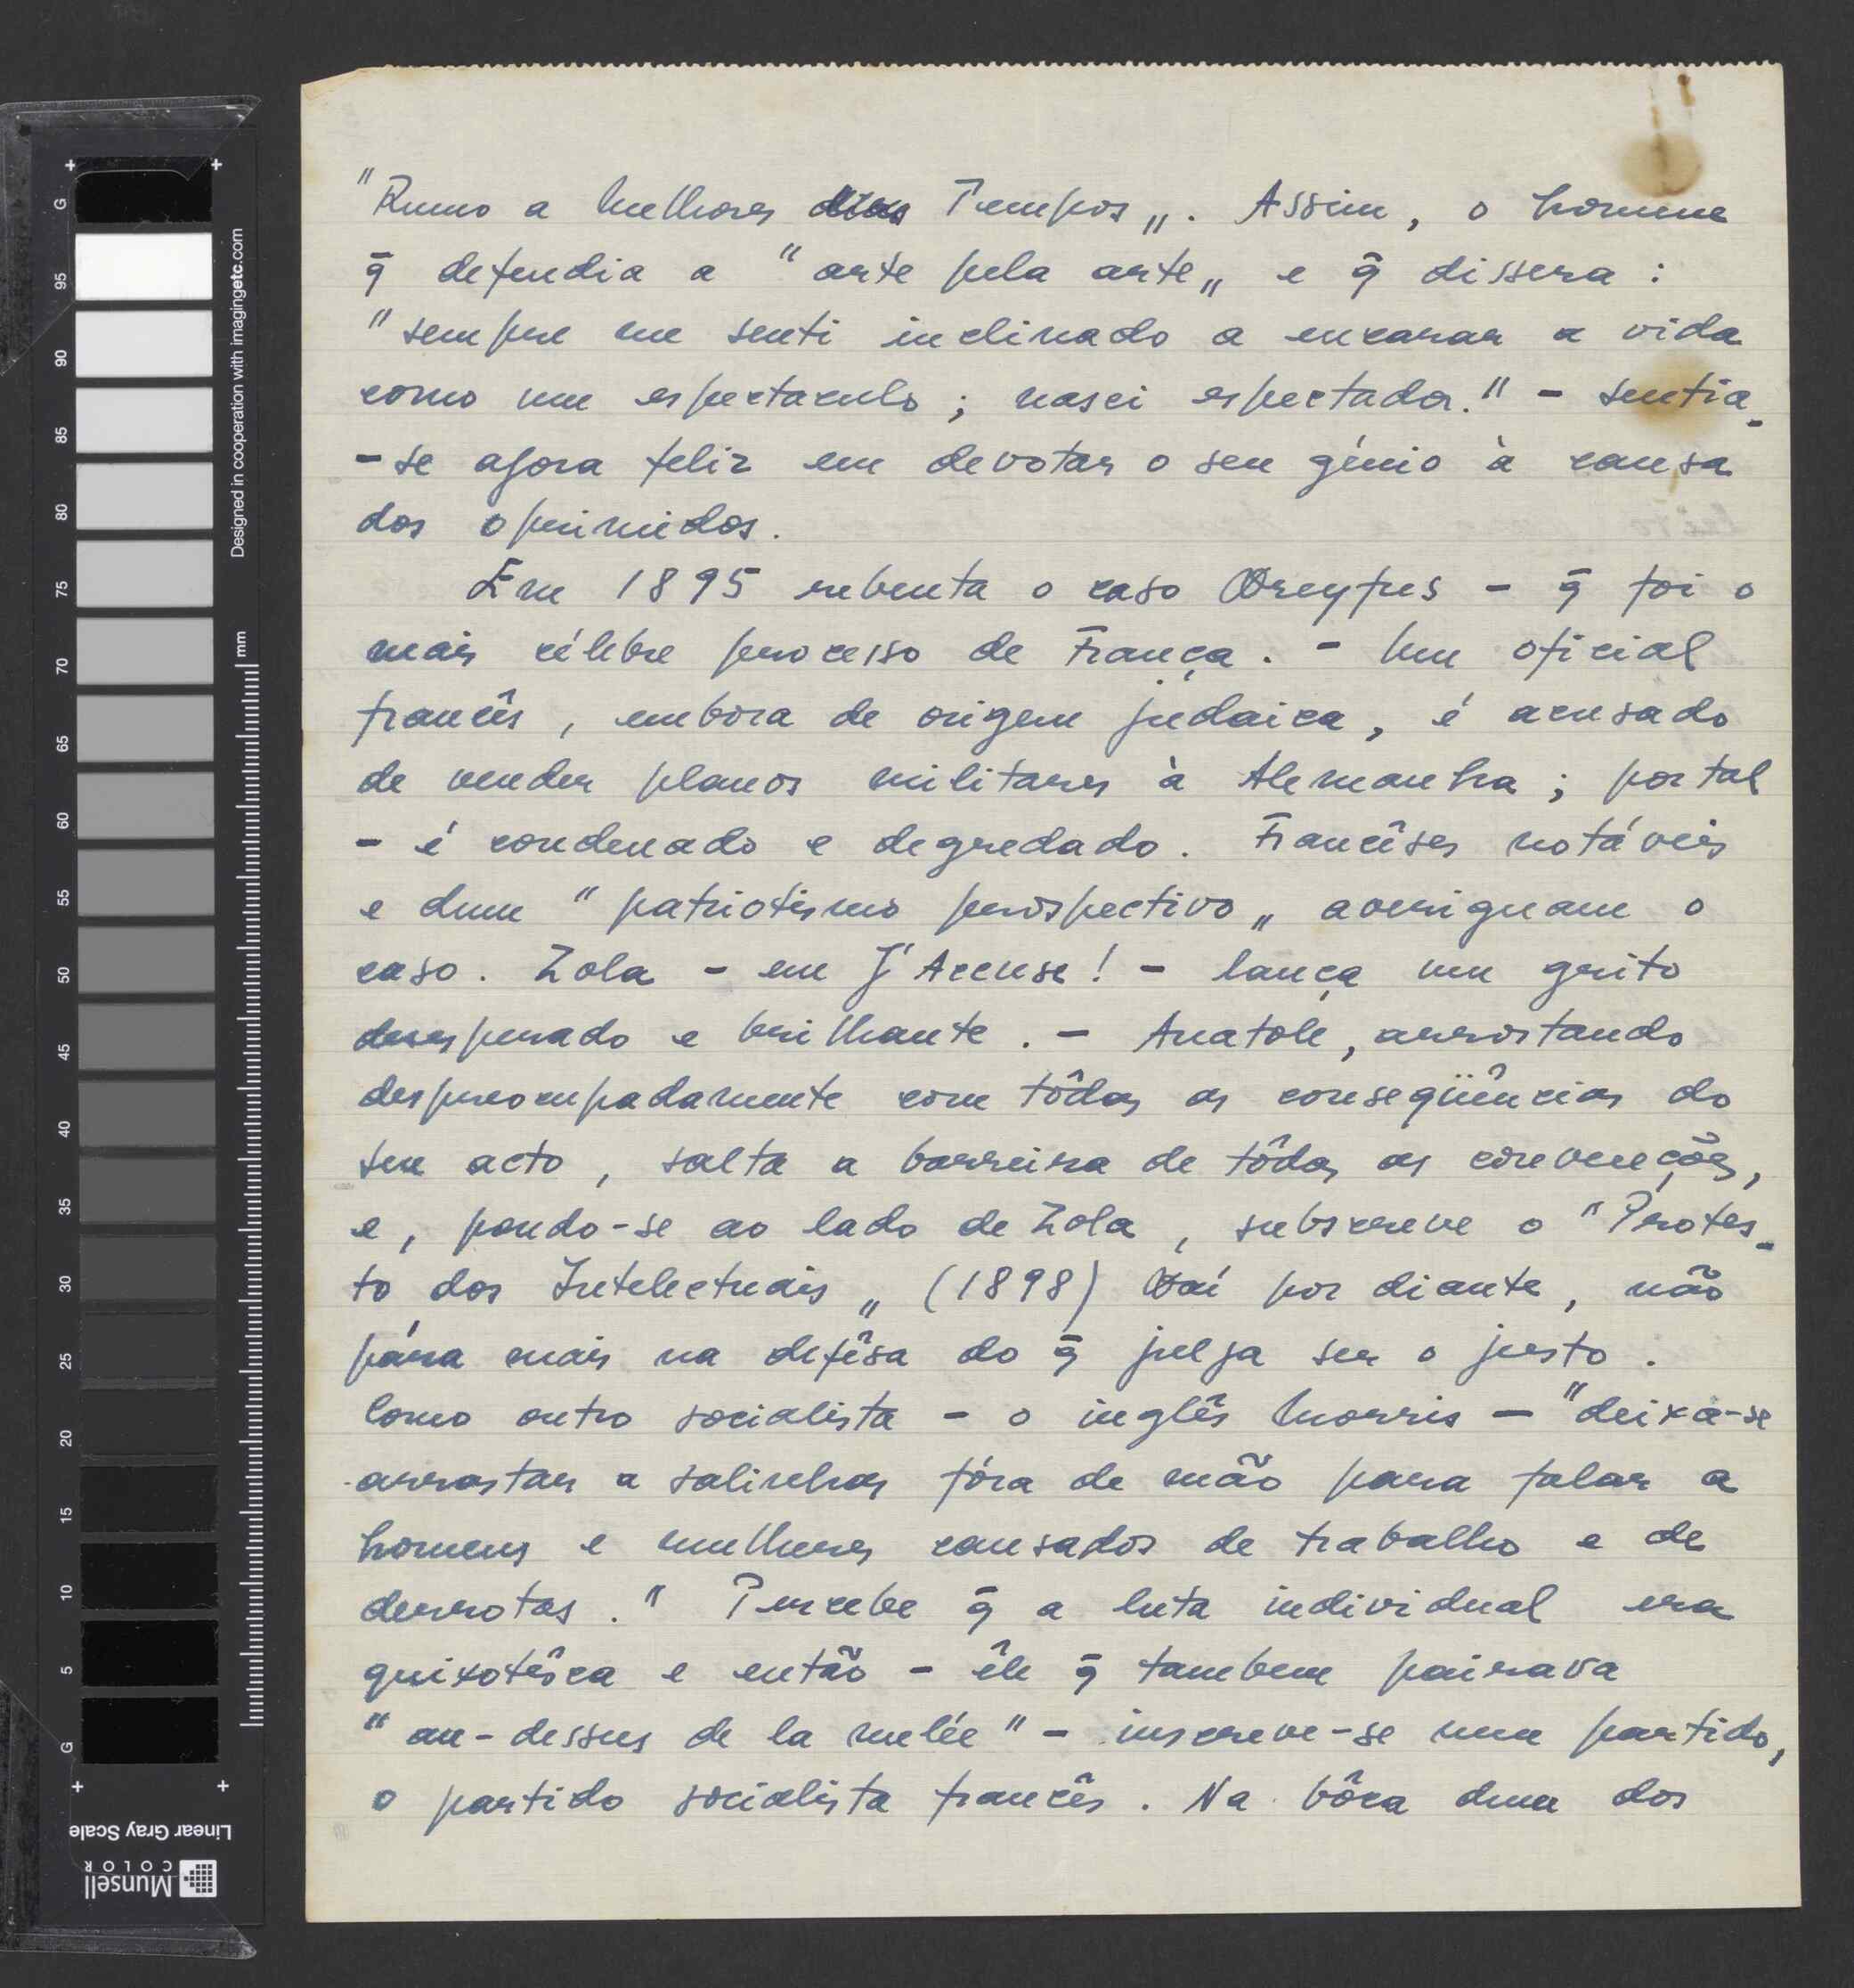 "Rumo a Melhores dias Tempos„. Assim, o homem
q̄ defendia a "arte pela arte„ e q̄ dissera :
"sempre me senti inclinado a encarar a vida
como um espectaculo ; nasci espectador." - sentia-
- se agora feliz em devotar o seu génio à causa
dos oprimidos.
Em 1895 rebenta o caso Dreyfus - q̄ foi o
mais célebre processo de França. - Um oficial
francês, embora de origem judaica, é acusado
de vender planos militares à Alemanha ; por tal
- é condenado e degredado. Francêses notáveis
e dum "patriotismo prospectivo„ averiguam o
caso. Zola - em J'Accuse! - lança um grito
desesperado e brilhante. - Anatole, arrostando
despreocupadamente com tôdas as conseqüências do
seu acto, salta a barreira de tôdas as convenções,
e, pondo-se ao lado de Zola, subscreve o "Protes-
to dos Intelectuais„ (1898) Daí por diante, não
pára mais na defêsa do q̄ julga ser o justo.
Como outro socialista - o inglês Morris - "deixa-se
arrastar a salinhas fóra de mão para falar a
homens e mulheres cansados de trabalho e de
derrotas." Percebe q̄ a luta individual era
quixotêsca e então - êle q̄ tambem pairava
"au-dessus de la melée" - inscreve-se num partido,
o partido socialista francês. Na bôca dum dos
G
95
90
85
80
75
70
65
60
55
50
45
40
35
30
25
20
15
10
5
G
mm
Designed in cooperation with imagingetc.com
Linear Gray Scale
Munsell
COLOR